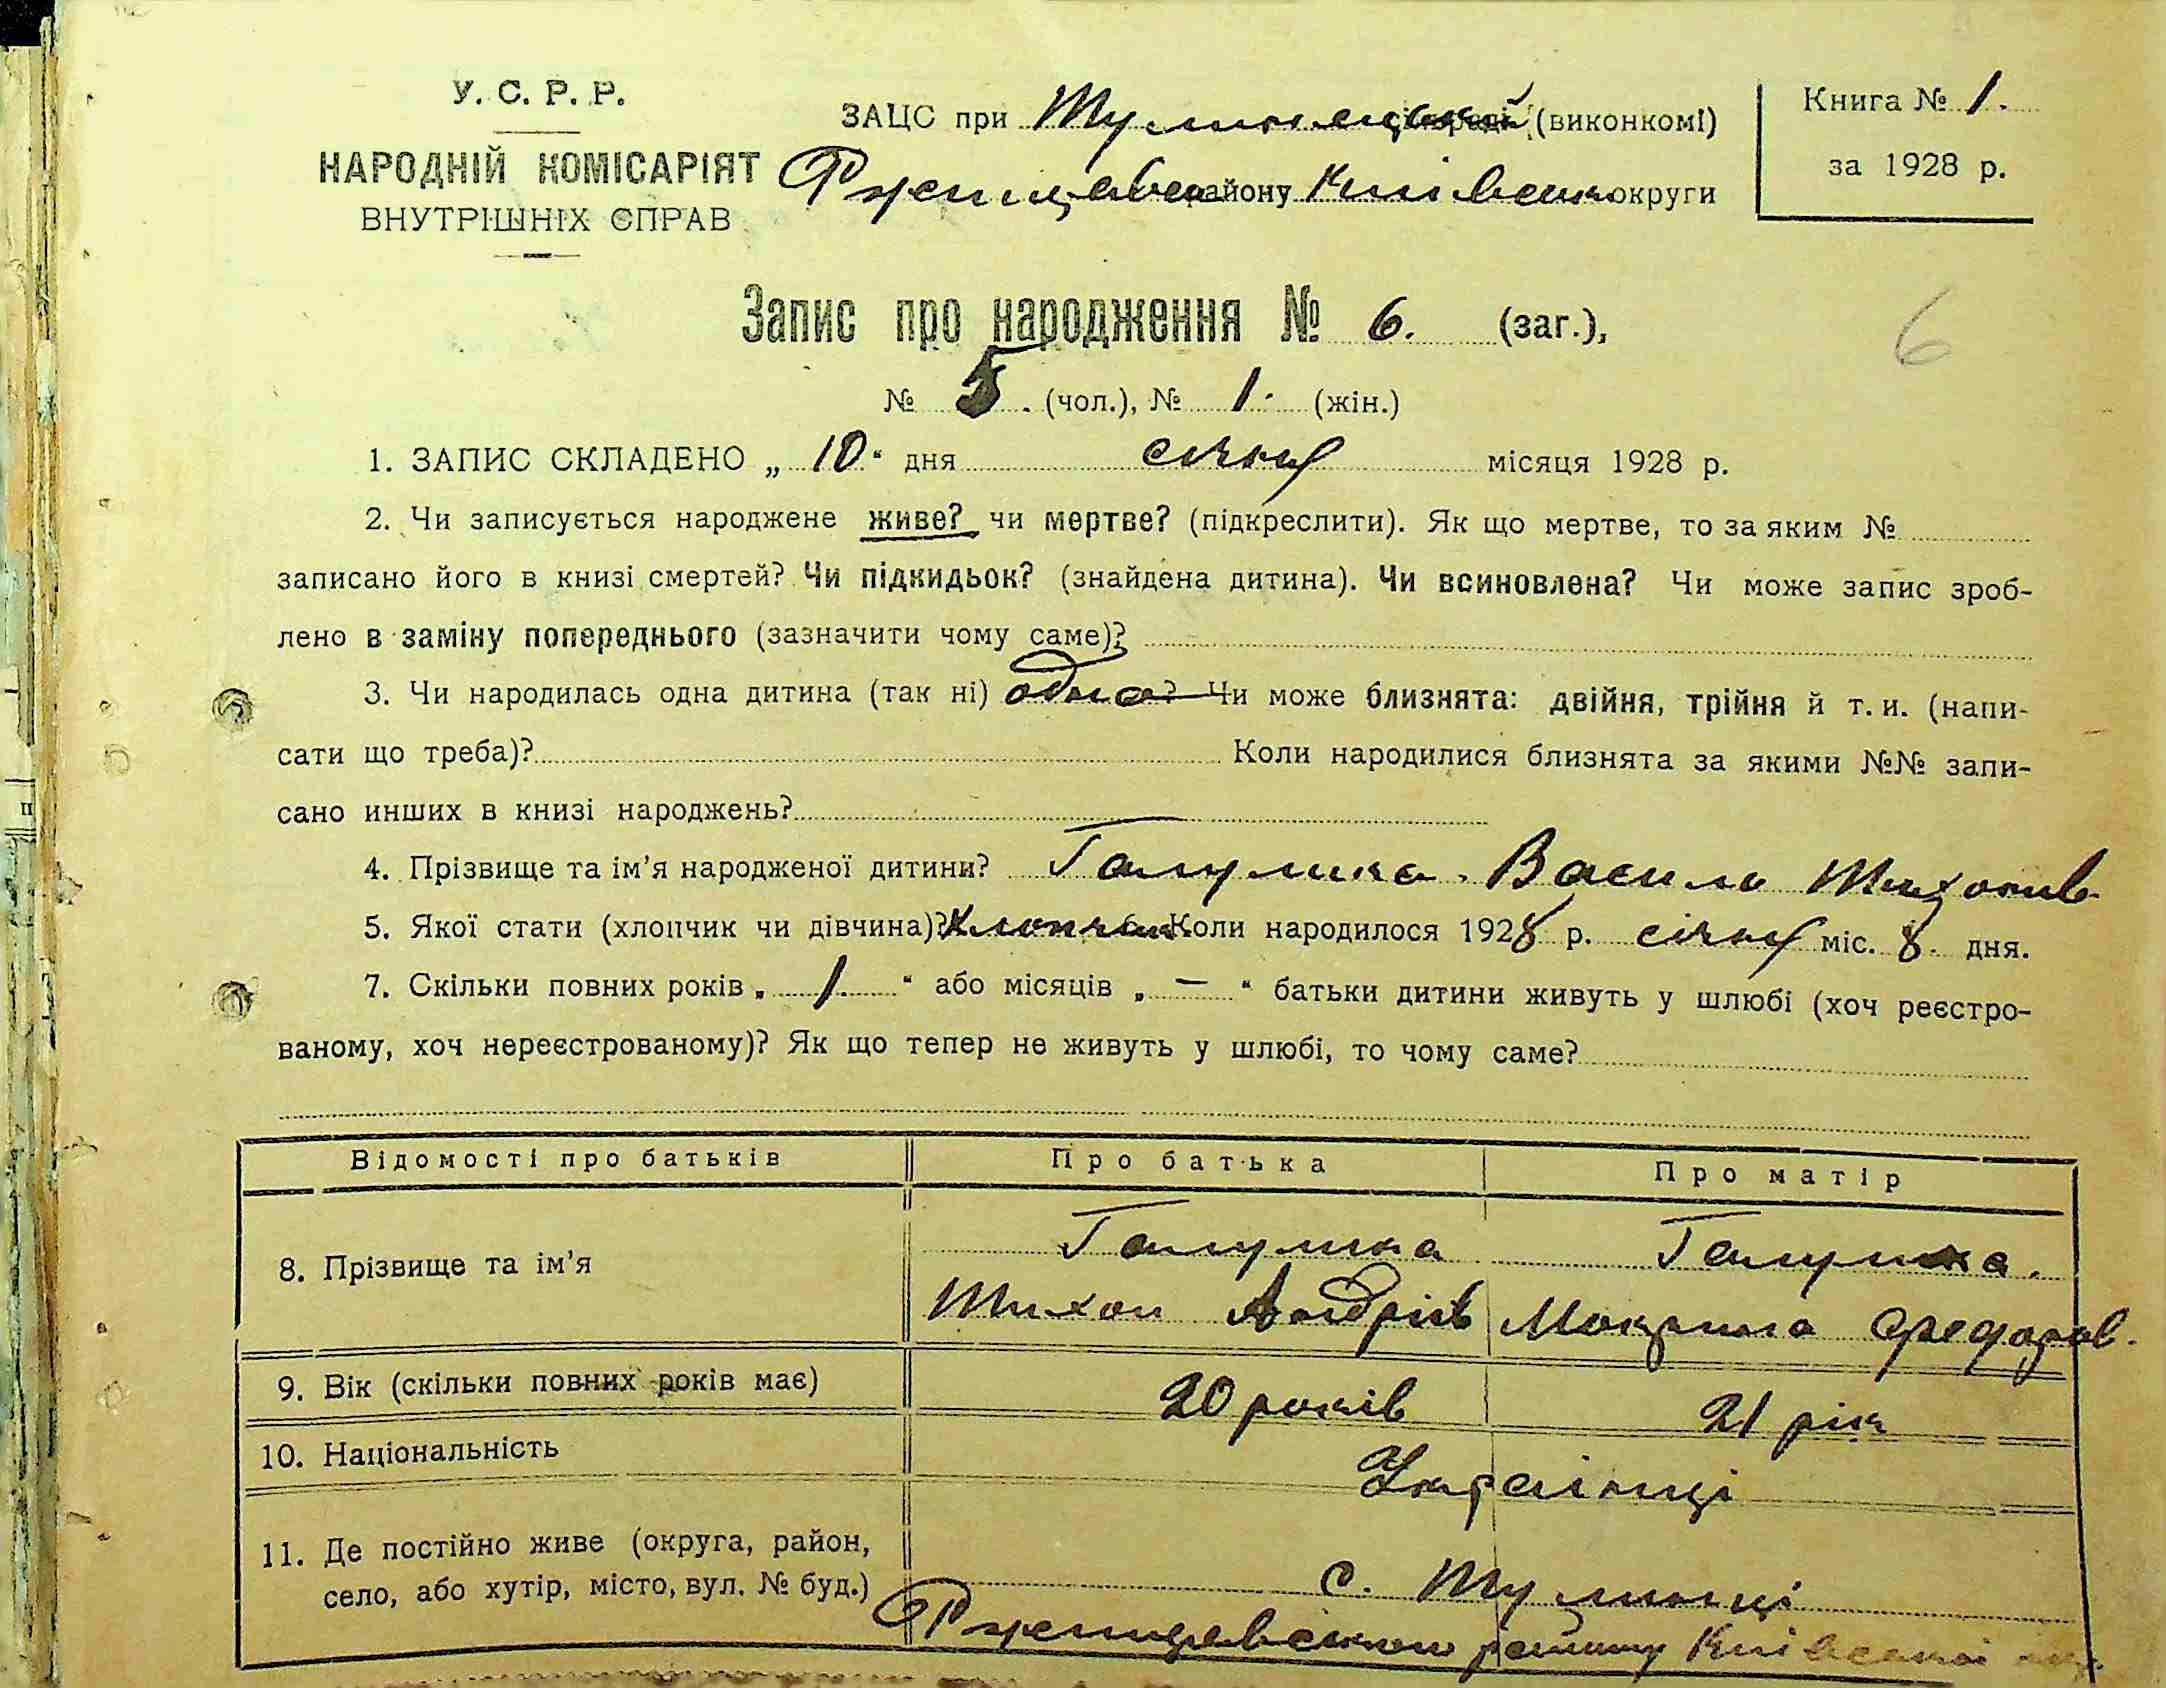 У. С. Р. Р.
НАРОДНІЙ КОМІСАРІЯТ
ВНУТРІШНІХ СПРАВ
ЗАЦС при Тулинецькій сільраді (виконкомі)
Ржищевськ району Київськ округи
Книга № 1.
за 1928 р.
Запис про народження № 6. (заг.),
6
№ 5. (чол.), № 1. (жін.)
1. ЗАПИС СКЛАДЕНО „ 10 “ дня січня місяця 1928 р.
2. Чи записується народжене живе? чи мертве? (підкреслити). Як що мертве, то за яким №
записано його в книзі смертей? Чи підкидьок? (знайдена дитина). Чи всиновлена? Чи може запис зроб-
лено в заміну попереднього (зазначити чому саме)?
3. Чи народилась одна дитина (так ні) одна? Чи може близнята: двійня, трійня й т. и. (напи-
сати що треба)? Коли народилися близнята за якими №№ запи-
сано инших в книзі народжень?
4. Прізвище та ім’я народженої дитини? Галушка Василь Тихонів
5. Якої стати (хлопчик чи дівчина)? Хлопчик Коли народилося 1928 р. січня міс. 8. дня.
7. Скільки повних років „ 1. “ або місяців „ — “ батьки дитини живуть у шлюбі (хоч реєстро-
ваному, хоч нереєстрованому)? Як що тепер не живуть у шлюбі, то чому саме?
Відомості про батьків Про батька Про матір
8. Прізвище та ім’я Галушка Галушка.
Тихон Андріїв Мокрина Федоров.
9. Вік (скільки повних років має) 20 років 21 рік
10. Національність Українці
11. Де постійно живе (округа, район, с. Тулинці
село, або хутір, місто, вул. № буд.) Ржищевського району Київської окр.